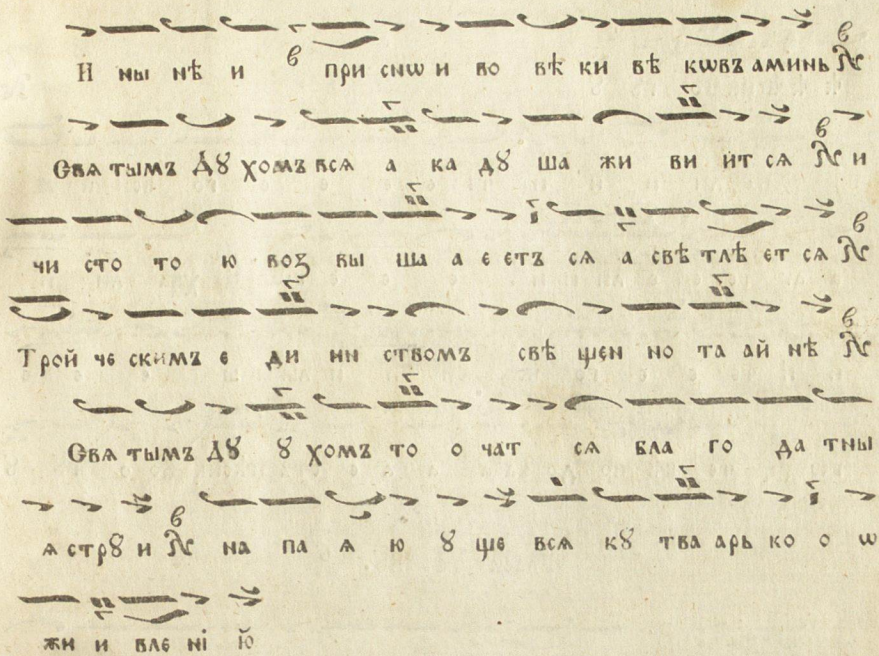 И ны нѣ и в при снѡ и во вѣ ки вѣ кѡвъ аминь
Свя тымъ Дꙋ хомъ вся а ка дꙋ ша жи ви ит ся и
чи сто то ю воз вы ша а є єтъ ся а свѣ тлѣ єт ся
Трой че скимъ є ди ни ствомъ свѣ щен но та ай нѣ
Свя тымъ Дꙋ ꙋ хомъ то о чат ся бла го да тны
я стрꙋ и на па я ю ꙋ ще вся кꙋ тва арь ко о ѡ
жи и вле ні ю